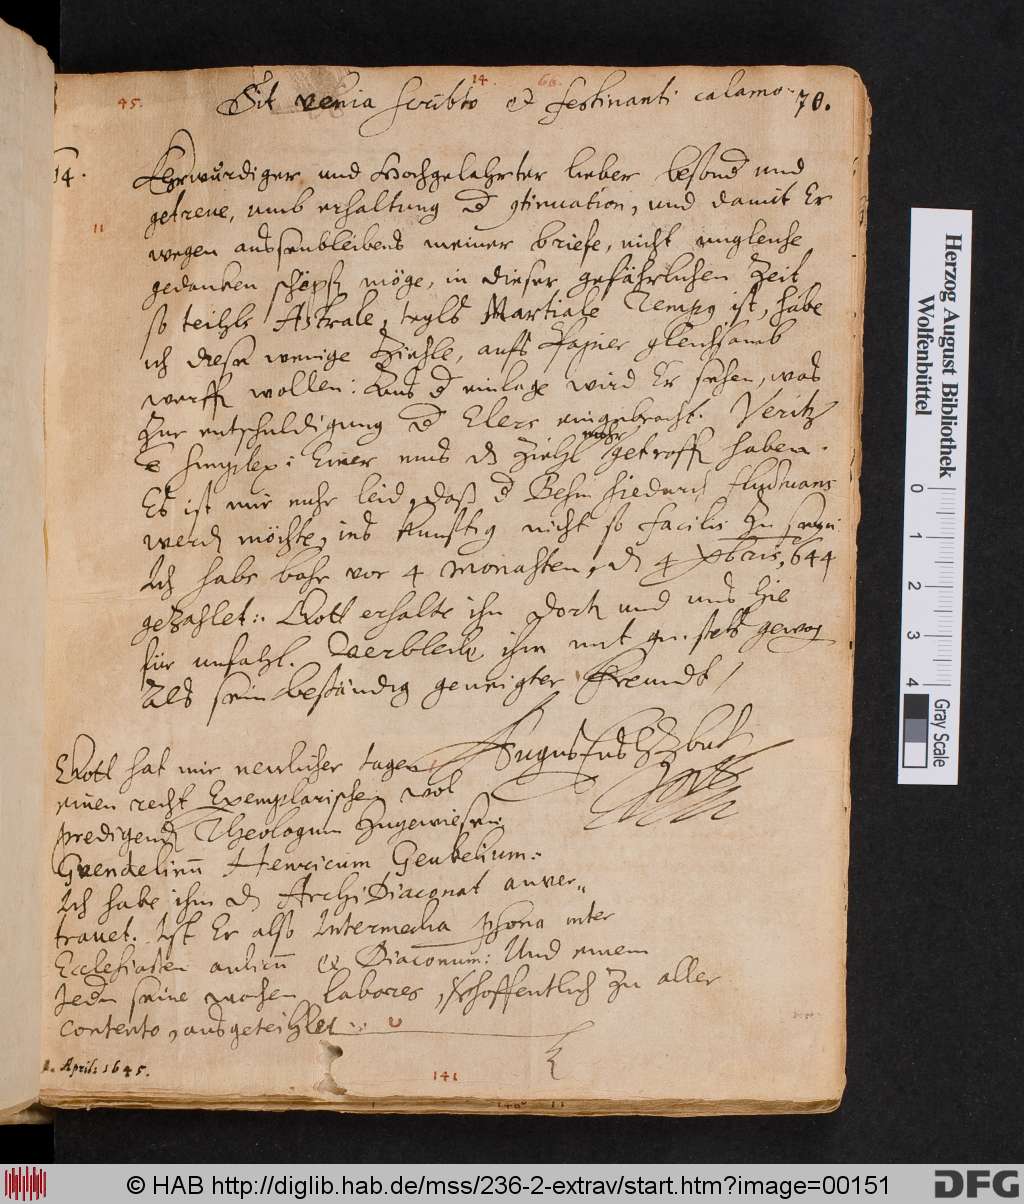 14. 66.
45. Sit venia scripto et festinanti calamo. 70.
14. Ehrwürdiger und Hochgelahrter lieber besond und
getreue, umb erhaltung d continuation, und damit Er
11
wegen aussenbleibens meiner briefe, nicht ungleiche
gedancken schöpf möge, in dieser gefährlichen Zeit
so teihls Astrale, teyls Martiale Tempus ist, habe
ich diese wenige Ziehle, aufs Papier gleichsamb
werff wollen: Aus d einlage wird Er sehen, was
Zur entschuldigung d Elers eingebracht. Veritas
simplex: Einer mus dz Ziehl mehr getroff haben.
Es ist mir sehr leid, daß d hiedurch
werd möchte, ins Kunftig nicht so facilis Zu seyn
Ich habe bahr vor 4 Monahten, d 4 Xbris, 644
geZahlet: Gott erhalte ihn dort und uns hie
für unfahl. Verbleibe ihm mit gn. stets gewog
Als sein beständig geneigter Freundt
Augustus HZBuL
Gott hat mir newlicher tage
einen recht Exemplarischen wol
predigend Theologum Zugewiesen
Henricum
Ich habe ihm dz ArchiDiaconat anver-
trauet. Ist Er also Intermedia persona inter
Ecclesiasten aulicum et Diaconum: Und einem
Jedn seine wochen labores, verhoffentlich Zu aller
contento, ausgeteihlet
1. April: 1645.
141
Herzog August Bibliothek
Wolfenbüttel
0 1 2 3 4
Gray Scale
© HAB http://diglib.hab.de/mss/236-2-extrav/start.htm?image=00151
DFG